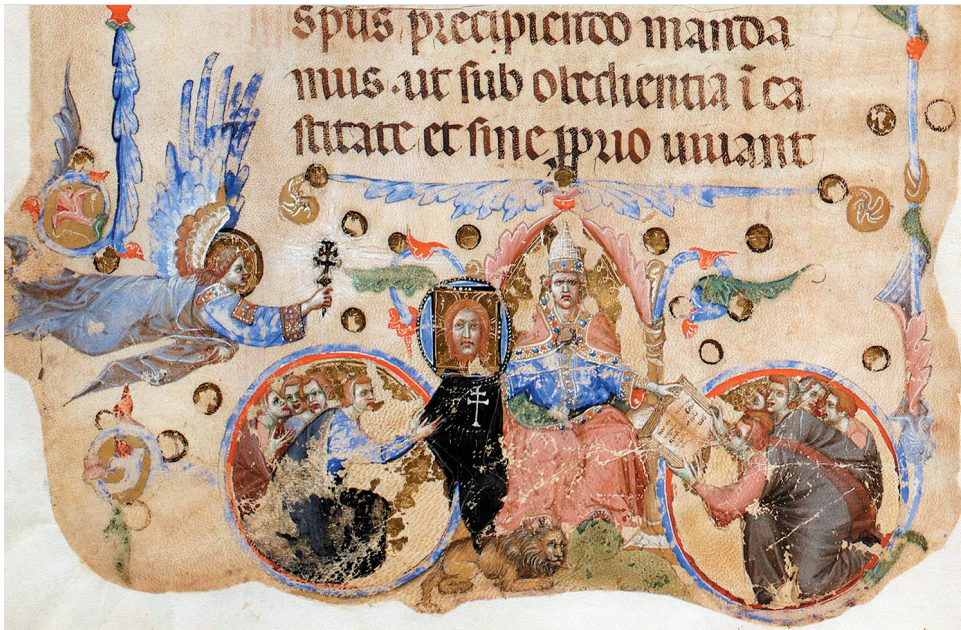 spūs precipiendo manda
mus.ut sub obedientia ī ca
stitate et sine ꝓprio uiuant